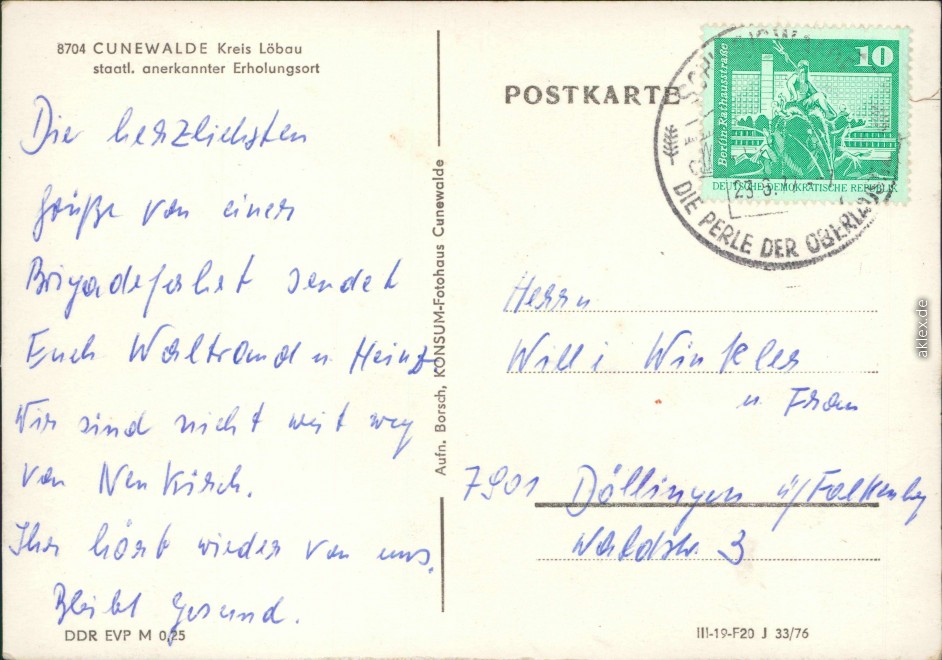 8704 CUNEWALDE Kreis Löbau
staatl. anerkannter Erholungsort
Die herzlichsten
Grüße von einer
Brigadefahrt sendet
Euch Waltraud u Heinz
Wir sind nicht weit weg
von Neukirch.
Ihr hört wieder von uns.
Bleibt Gesund.
DDR EVP M 0,25
Aufn. Borsch, KONSUM-Fotohaus Cunewalde
POSTKARTE
10
Berlin-Rathausstraße
DEUTSCHE DEMOKRATISCHE REPUBLIK
DIE PERLE DER
Herrn
Willi Winkler
u. Frau
7901 Döllingen ü/Falkenbg
Waldstr. 3
III-19-F20 J 33/76
aklex.de